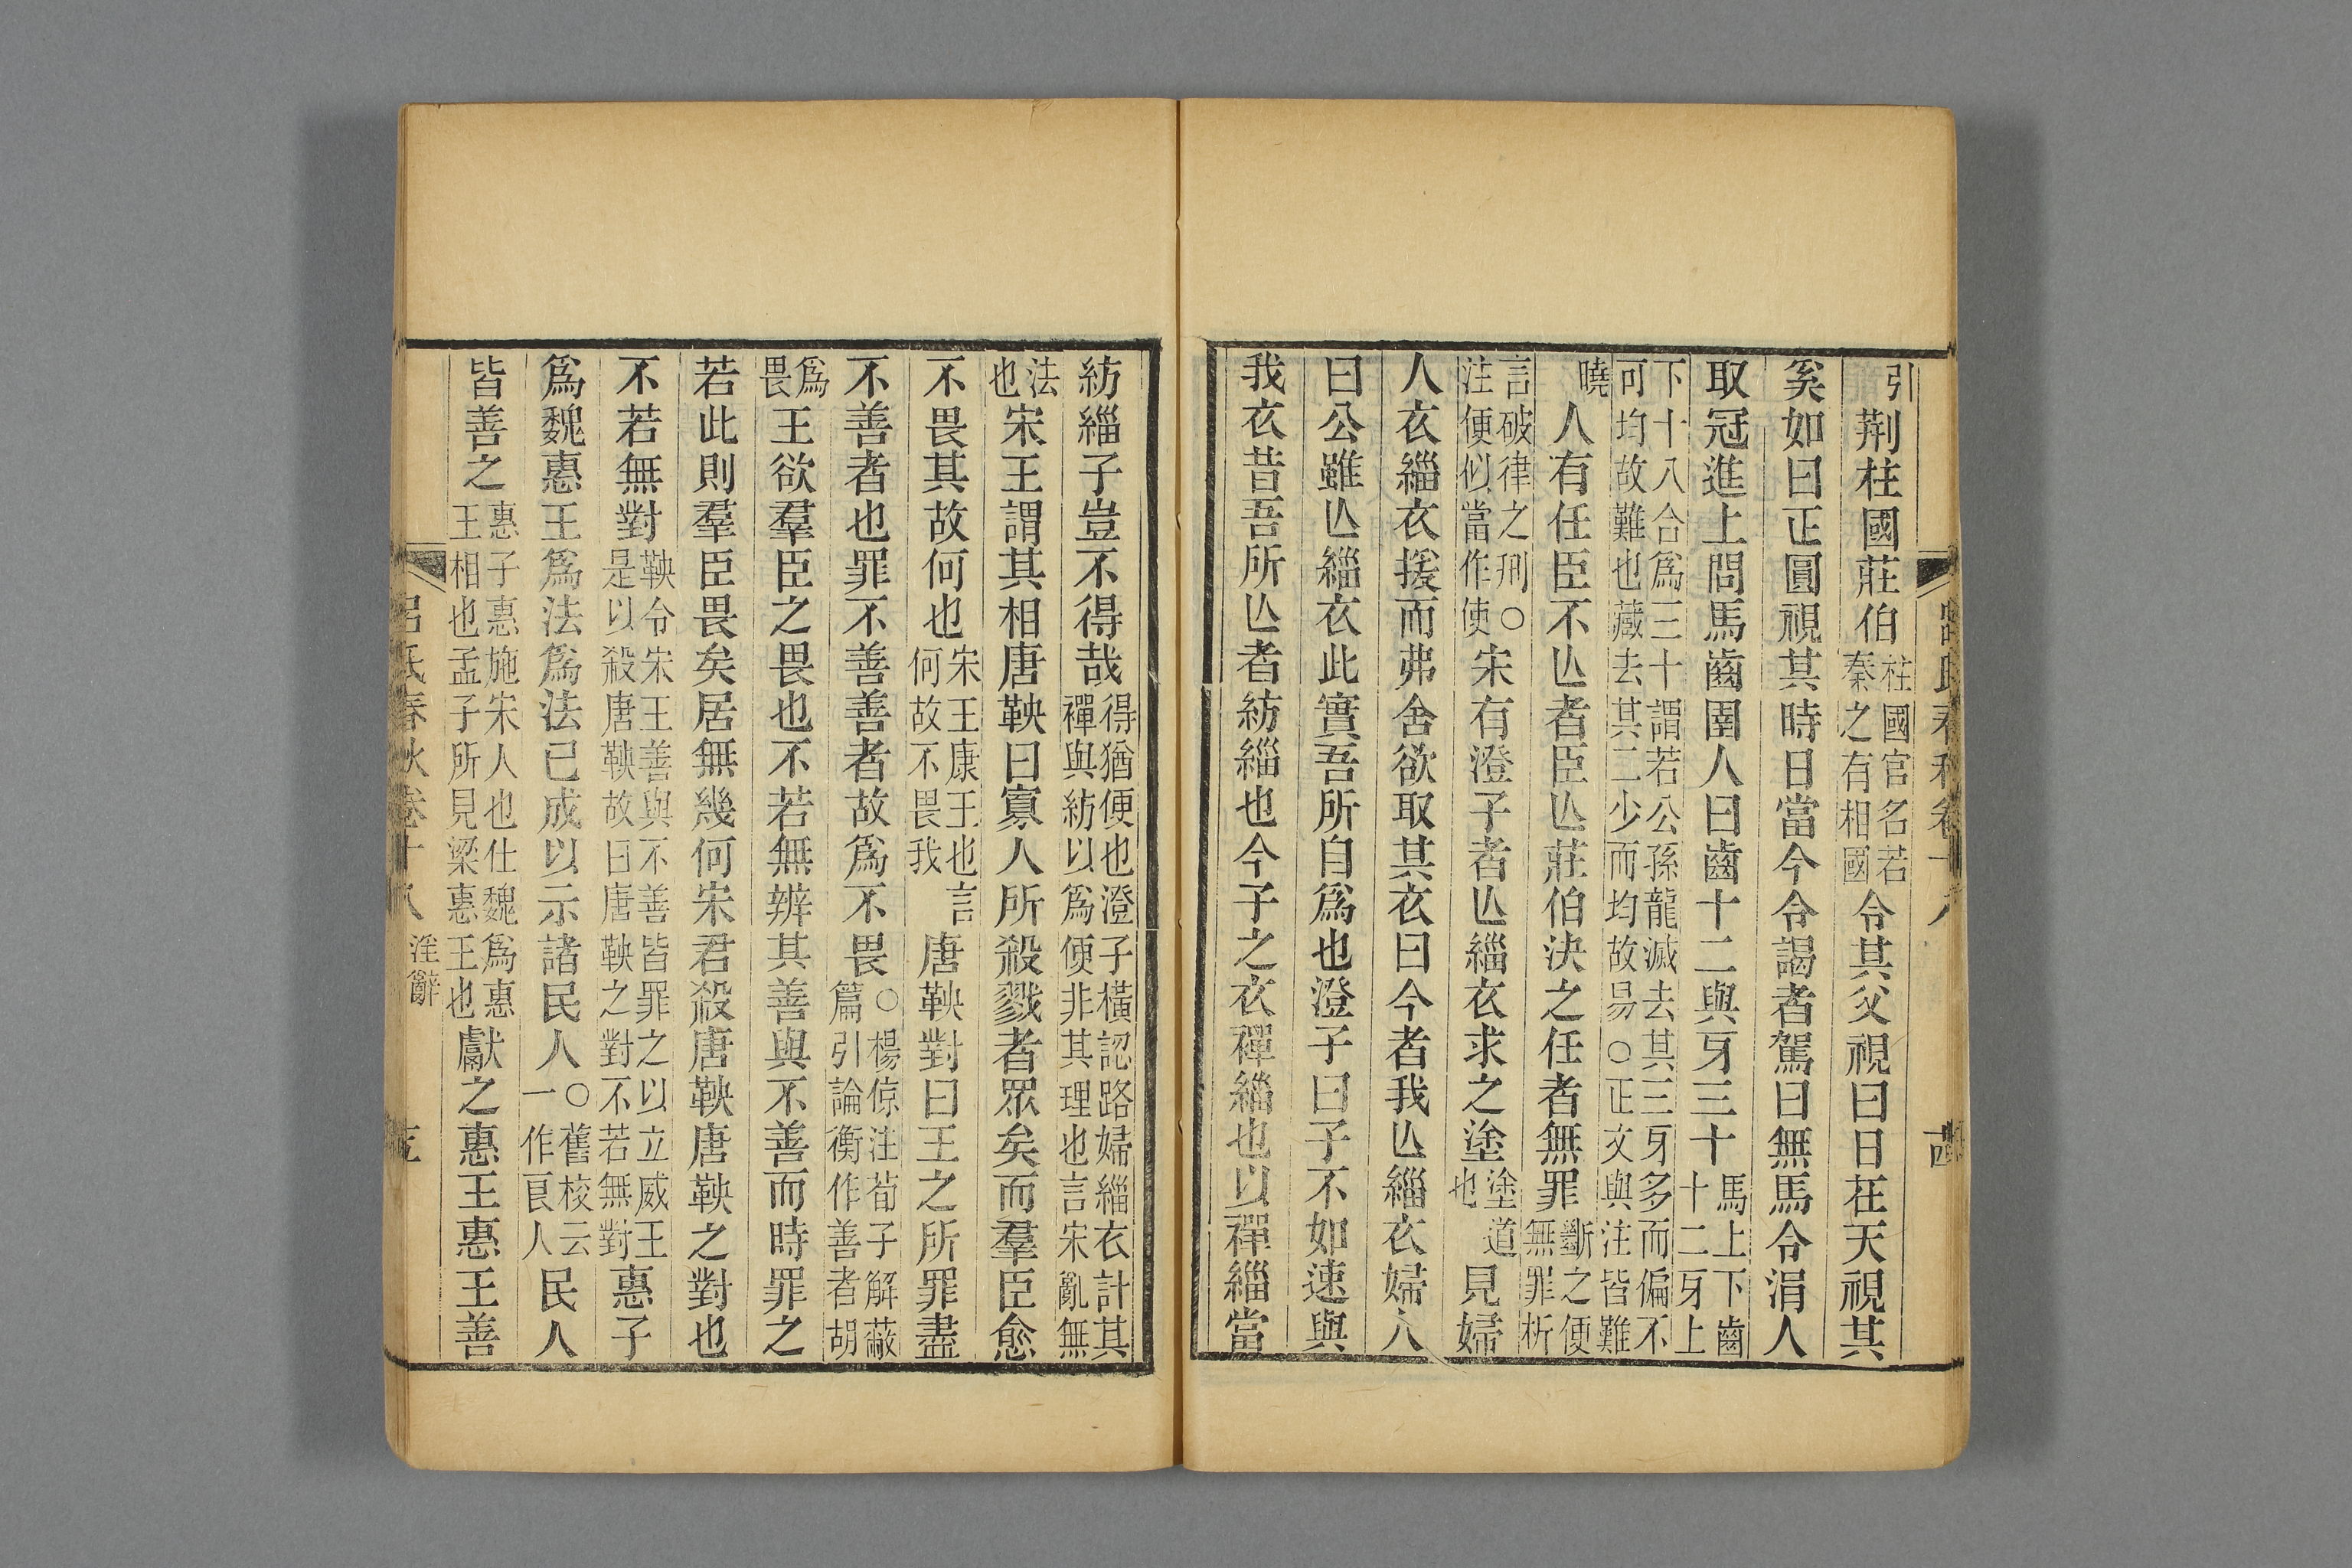 呂氏春秋卷十八
引荆柱國莊伯柱國官名若秦之有相國令其父視曰日在天視其
奚如曰正圓視其時日當今令謁者駕曰無馬令涓人
取冠進上問馬齒圉人曰齒十二與牙三十馬上下齒十二牙上
下十八合爲三十謂若公孫龍滅去其三牙多而偏不可均故難也藏去其二少而均故易○正文與注皆難
曉人有任臣不亾者臣亾莊伯決之任者無罪斷之便無罪析
言破律之刑○注便似當作使宋有澄子者亾緇衣求之塗塗道也見婦
人衣緇衣援而弗舍欲取其衣曰今者我亾緇衣婦人
曰公雖亾緇衣此實吾所自爲也澄子曰子不如速與
我衣昔吾所亾者紡緇也今子之衣襌緇也以襌緇當
紡緇子豈不得哉得猶便也澄子橫認路婦緇衣計其襌與紡以爲便非其理也言宋亂無
法也宋王謂其相唐鞅曰寡人所殺戮者眾矣而羣臣愈
不畏其故何也宋王康王也言何故不畏我唐鞅對曰王之所罪盡
不善者也罪不善善者故爲不畏○楊倞注荀子解蔽篇引論衡作善者胡
爲畏王欲羣臣之畏也不若無辨其善與不善而時罪之
若此則羣臣畏矣居無幾何宋君殺唐鞅唐鞅之對也
不若無對鞅令宋王善與不善皆罪之以立威王是以殺唐鞅故曰唐鞅之對不若無對惠子
爲魏惠王爲法爲法已成以示諸民人○舊校云一作良人民人
皆善之惠子惠施宋人也仕魏爲惠王相也孟子所見梁惠王也獻之惠王惠王善
呂氏春秋卷十八 淫辭